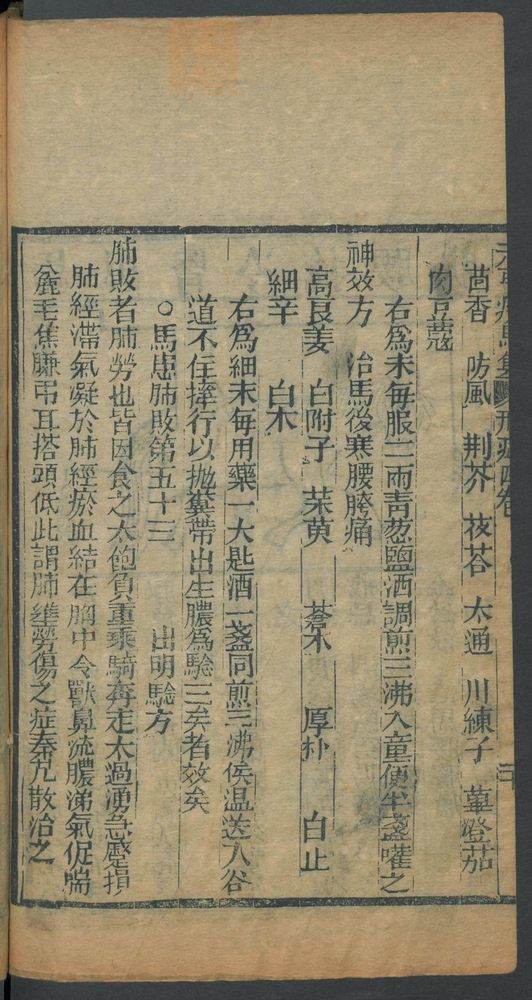 茴香　防風　荆芥　枝苔　木通　川練子　蓽澄茄
肉豆蔻
右爲末每服二兩青葱鹽酒調煎三沸入童便半盞嚾之
神效方　治馬後寒腰胯痛
高良姜　白附子　茱萸　蒼木　厚朴　白止
細辛　白木
右爲細末每用藥一大匙酒一盞同煎三沸俟温送入谷
道不住摔行以抛糞帶出生膿爲驗三矣者效矣
○馬患肺敗第五十三　出明驗方
肺敗者肺勞也皆因食之太飽負重乘騎奔走太過湧急壅損
肺經滯氣凝於肺經瘀血結在胸中令獸鼻流膿涕氣促喘
麄毛焦膁吊耳搭頭低此謂肺壅勞傷之症秦艽散治之